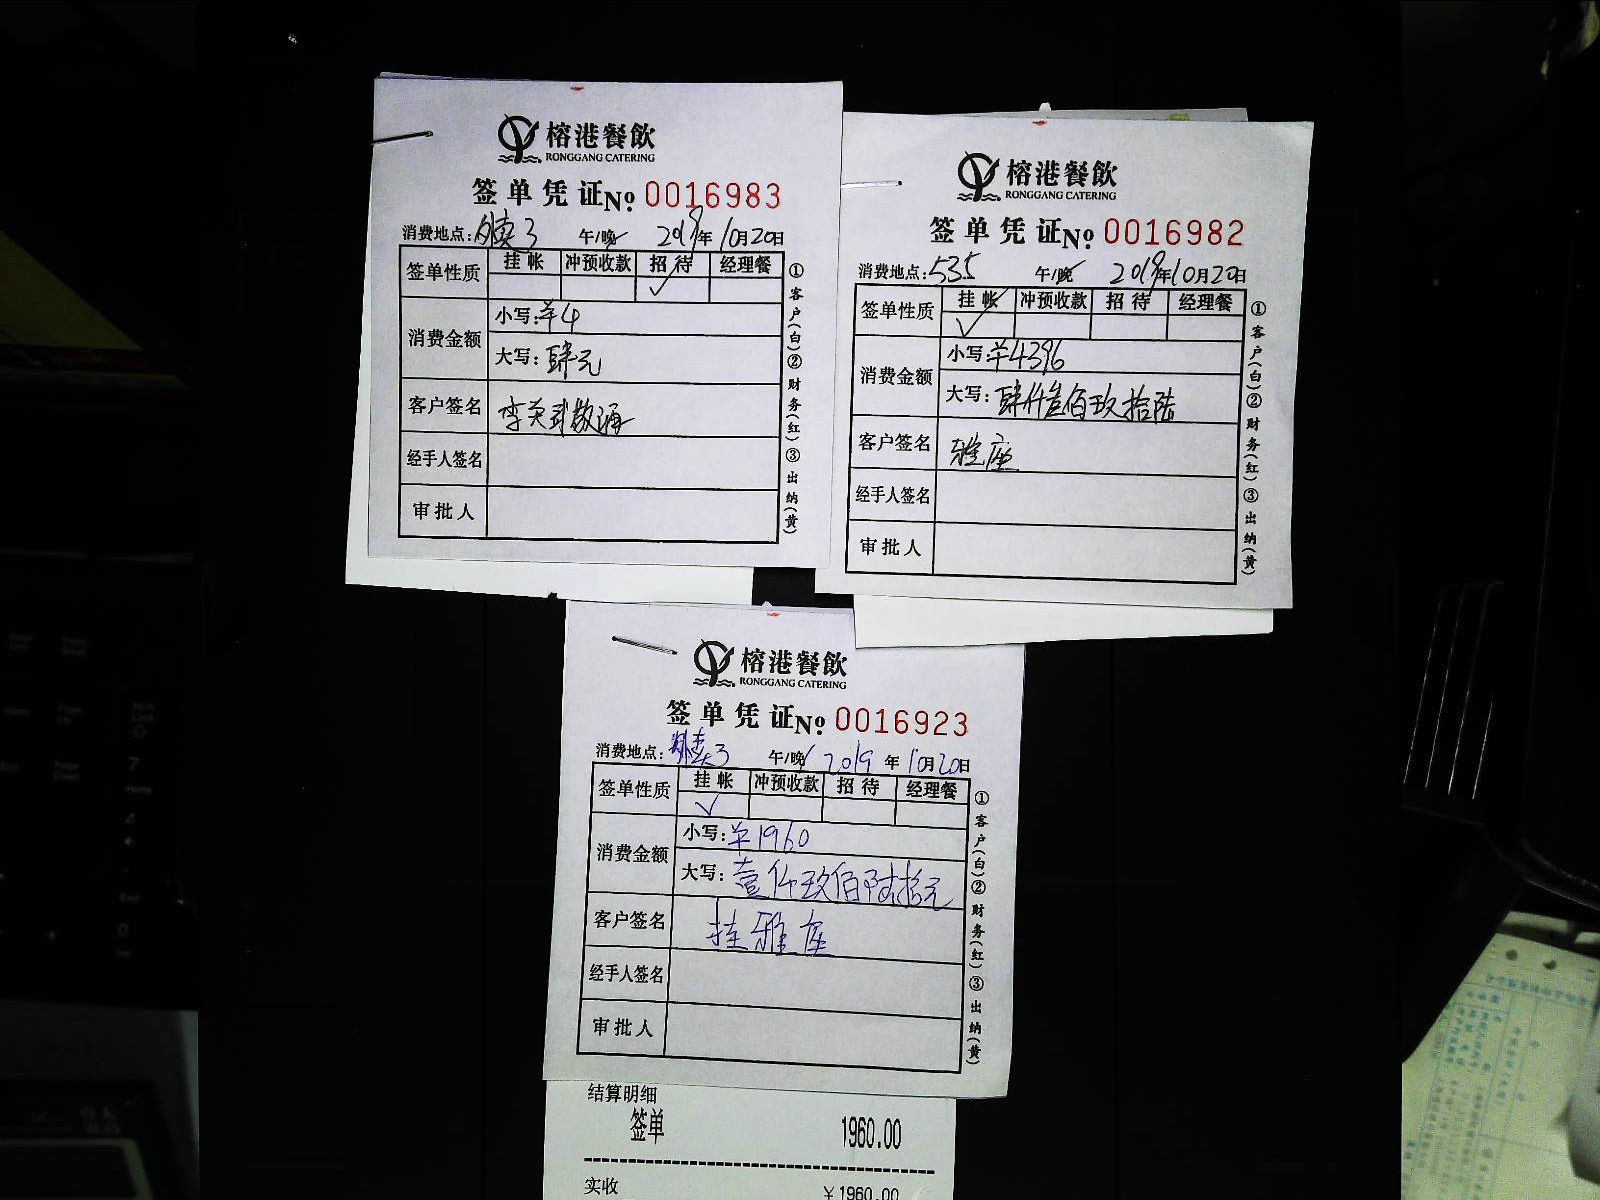 榕港餐飲
RONGGANG CATERING
签单凭证№ 0016983
消费地点:外卖3 午/晚 2019年10月20日
签单性质 挂帐 冲预收款 招待 经理餐
✓
消费金额 小写:¥4
大写:肆元
客户签名
经手人签名
审批人
①客户(白)②财务(红)③出纳(黄)
榕港餐飲
RONGGANG CATERING
签单凭证№ 0016982
消费地点:535 午/晚 2019年10月20日
签单性质 挂帐 冲预收款 招待 经理餐
✓
消费金额 小写:¥4396
大写:肆仟叁佰玖拾陆
客户签名 雅座
经手人签名
审批人
①客户(白)②财务(红)③出纳(黄)
榕港餐飲
RONGGANG CATERING
签单凭证№ 0016923
消费地点:外卖3 午/晚 2019年10月20日
签单性质 挂帐 冲预收款 招待 经理餐
✓
消费金额 小写:¥1960
大写:壹仟玖佰陆拾元
客户签名 挂雅座
经手人签名
审批人
①客户(白)②财务(红)③出纳(黄)
结算明细
签单 1960.00
实收 ¥1960.00